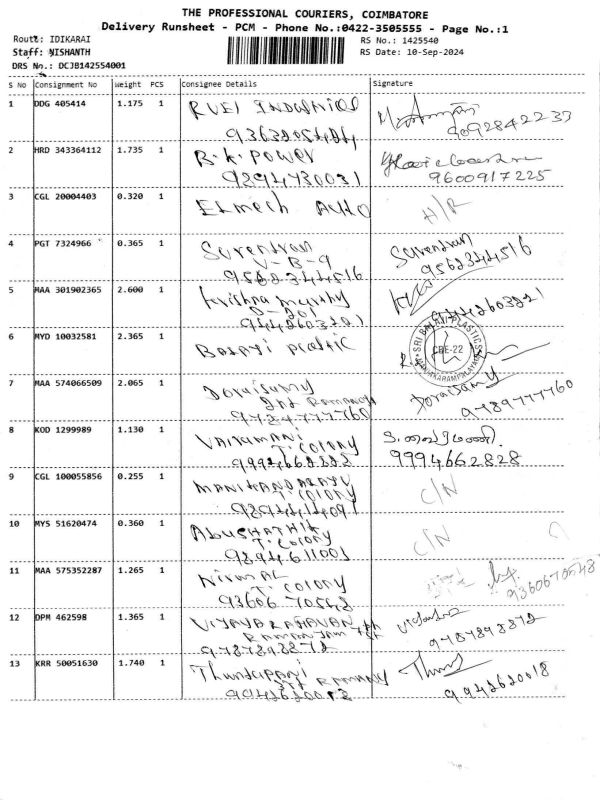 THE PROFESSIONAL COURIERS, COIMBATORE
Delivery Runsheet - PCM - Phone No.:0422-3505555 - Page No.:1
Route: IDIKARAI
RS No.: 1425540
Staff: NISHANTH
RS Date: 10-Sep-2024
DRS No.: DCJB142554001
S No Consignment No Weight PCS Consignee Details Signature
1 DDG 405414 1.175 1
9092842233
2 HRD 343364112 1.735 1 B.K. POWER
9894730031 9600917225
3 CGL 20004403 0.320 1 Elmech Auto
4 PGT 7324966 0.365 1 Surendran Surendran
V-B-9
9562344516 9562344516
5 MAA 301902365 2.600 1 Krishna murthy
D-201
9442603221
6 MYD 10032581 2.365 1 Balaji plastic
SRI BALAJI PLASTICS
CBE-22
7 MAA 574066509 2.065 1 Doraisamy Doraisamy
9789777760
8 KOD 1299989 1.130 1
T. COLONY
9994662828 9994662828
9 CGL 100055856 0.255 1 C/N
T. COLONY
10 MYS 51620474 0.360 1 C/N
T. COLONY
9894611001
11 MAA 575352287 1.265 1 NIRMAL
T. COLONY
93606 70548 9360670548
12 DPM 462598 1.365 1 VIJAYARAGAVAN
9787898872 9787898872
13 KRR 50051630 1.740 1
9942620018 9942620018